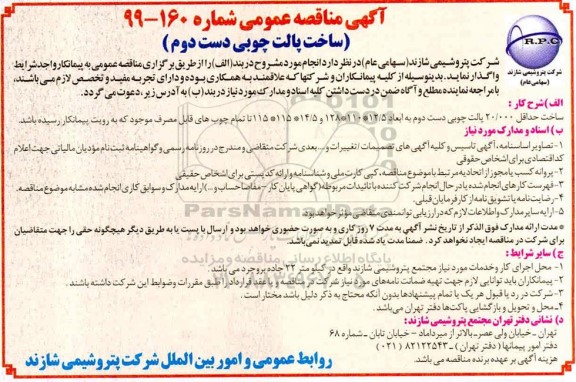 آگهی مناقصه عمومی شماره ۱۶۰-۹۹
(ساخت پالت چوبی دست دوم)
R.P.C
شرکت پتروشیمی شازند
(سهامی عام)
شرکت پتروشیمی شازند (سهامی عام) در نظر دارد انجام امور مشروح در بند (الف) را از طریق برگزاری مناقصه عمومی به پیمانکار واجد شرایط
واگذار نماید. بدینوسیله از کلیه پیمانکاران و شرکتها که علاقمند به همکاری بوده و دارای تجربه مفید و تخصص لازم می باشند،
با مراجعه نماینده مطلع و آگاه ضمن در دست داشتن کلیه اسناد و مدارک مورد نیاز در بند (ب) به آدرس زیر، دعوت می گردد.
الف) شرح کار :
ساخت حداقل ۲۰/۰۰۰ پالت چوبی دست دوم به ابعاد ۱۲/۵*۱۱۰*۱۲۸ و ۱۲/۵* ۱۱۵* ۱۱۵ تا تمام چوب های قابل مصرف موجود که به رویت پیمانکار رسیده باشد.
ب) اسناد و مدارک مورد نیاز
۱- تصاویر اساسنامه، آگهی تاسیس و کلیه آگهی های تصمیمات / تغییرات و... بعدی شرکت متقاضی و مندرج در روزنامه رسمی و گواهینامه ثبت نام مؤدیان مالیاتی جهت اعلام
کد اقتصادی برای اشخاص حقوقی
۲- پروانه کسب یا مجوز از اتحادیه مرتبط با موضوع مناقصه، کپی کارت ملی و شناسنامه و ارائه کد پستی برای اشخاص حقیقی
۳- فهرست کارهای انجام شده یا در حال انجام شرکت کننده با تائیدات مربوطه (گواهی پایان کار - مفاصاحساب و...) ارایه مدارک و سوابق کاری انجام شده مشابه موضوع مناقصه.
۴- رضایت نامه یا تشویق نامه از کارفرمایان قبلی.
۵- ارایه سایر مدارک و اطلاعات لازم که در ارزیابی توانمندی متقاضی مؤثر خواهد بود.
* مدت ارائه مدارک فوق الذکر از تاریخ نشر آگهی به مدت ۷ روز کاری و به صورت حضوری خواهد بود و ارسال با پست یا به طریق دیگر هیچگونه حقی را جهت متقاضیان
برای شرکت در مناقصه ایجاد نخواهد کرد. ضمنا مدت یاد شده قابل تمدید نمی باشد.
ج) سایر شرایط :
۱- محل اجرای کار و خدمات مورد نیاز مجتمع پتروشیمی شازند واقع در کیلو متر ۲۲ جاده بروجرد می باشد.
۲- پیمانکاران باید توانایی لازم جهت تهیه ضمانت نامه های مورد نیاز شرکت در مناقصه و یا عقد قرارداد را طبق مقررات وضوابط این شرکت داشته باشند.
۳- شرکت در رد یا قبول هر یک یا تمام پیشنهادها بدون آنکه محتاج به ذکر دلیل باشد مختار است.
۴- محل و تحویل و بازگشایی پاکت‌ها دفتر تهران می‌باشد.
د) نشانی دفتر تهران مجتمع پتروشیمی شازند :
تهران ـ خیابان ولی عصر- بالاتر از میرداماد - خیابان تابان - شماره ۶۸
دفتر امور پیمانها ( دفتر تهران ) ـ ۸۲۱۲۲۵۴۳ ( ۰۲۱ )
هزینه آگهی بر عهده برنده مناقصه می باشد.
روابط عمومی و امور بین الملل شرکت پتروشیمی شازند
ParsNamadData
پایگاه اطلاع رسانی مناقصه و مزایده